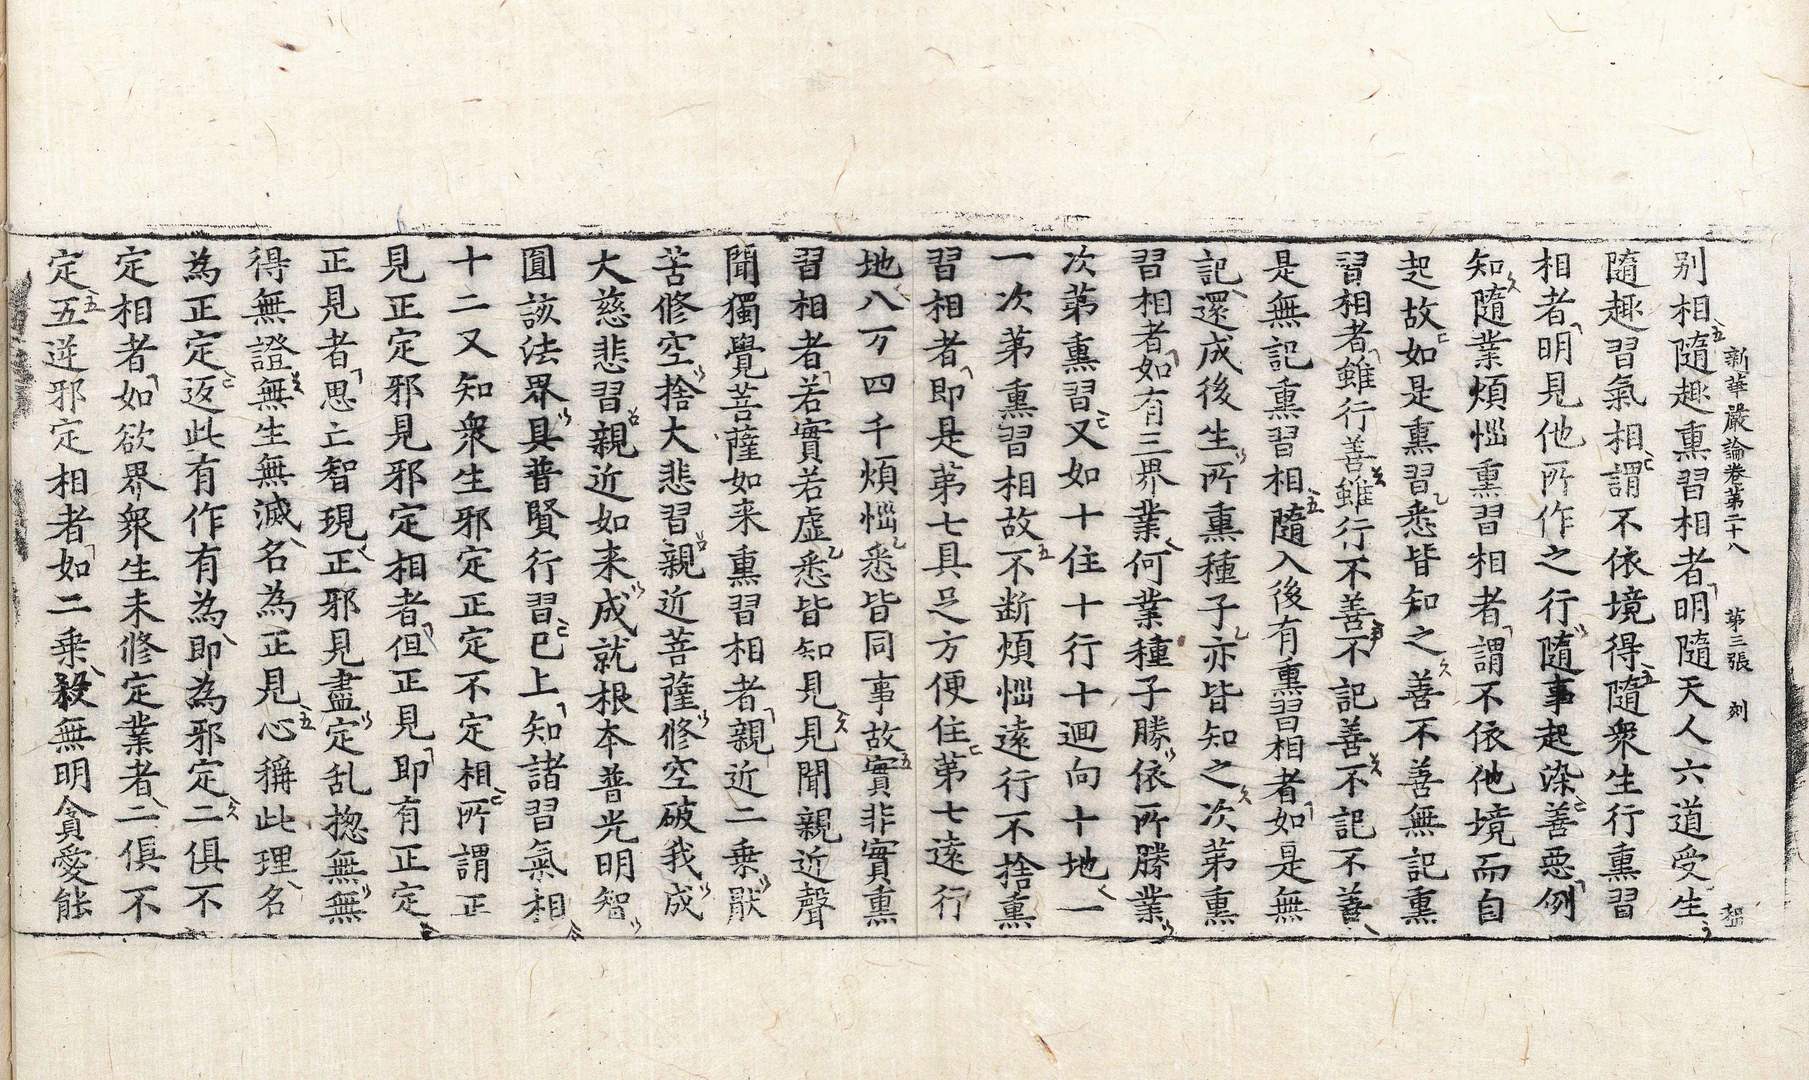 新華嚴論卷第二十八 第三張 刻
别相隨趣熏習相者明隨天人六道受生
隨趣習氣相謂不依境得隨衆生行熏習
相者明見他所作之行隨事起染善惡例
知隨業煩惱熏習相者謂不依他境而自
起故如是熏習悉皆知之善不善無記熏
習相者雖行善雖行不善不記善不記不善
是無記熏習相隨入後有熏習相者如是無
記還成後生所熏種子亦皆知之次第熏
習相者如有三界業何業種子勝依所勝業
次第熏習又如十住十行十迴向十地一
一次第熏習相故不断煩惱遠行不捨熏
習相者即是第七具足方便住第七遠行
地八万四千煩惱悉皆同事故實非實熏
習相者若實若虛悉皆知見見聞親近聲
聞獨覺菩薩如来熏習相者親近二乗猒
苦修空捨大悲習親近菩薩修空破我成
大慈悲習親近如来成就根本普光明智
圓該法界具普賢行習已上知諸習氣相
十二又知衆生邪定正定不定相所謂正
見正定邪見邪定相者但正見即有正定
正見者思亡智現正邪見盡定乱揔無無
得無證無生無滅名為正見心稱此理名
為正定返此有作有為即為邪定二俱不
定相者如欲界衆生未修定業者二俱不
定五逆邪定相者如二乗殺無明貪愛能